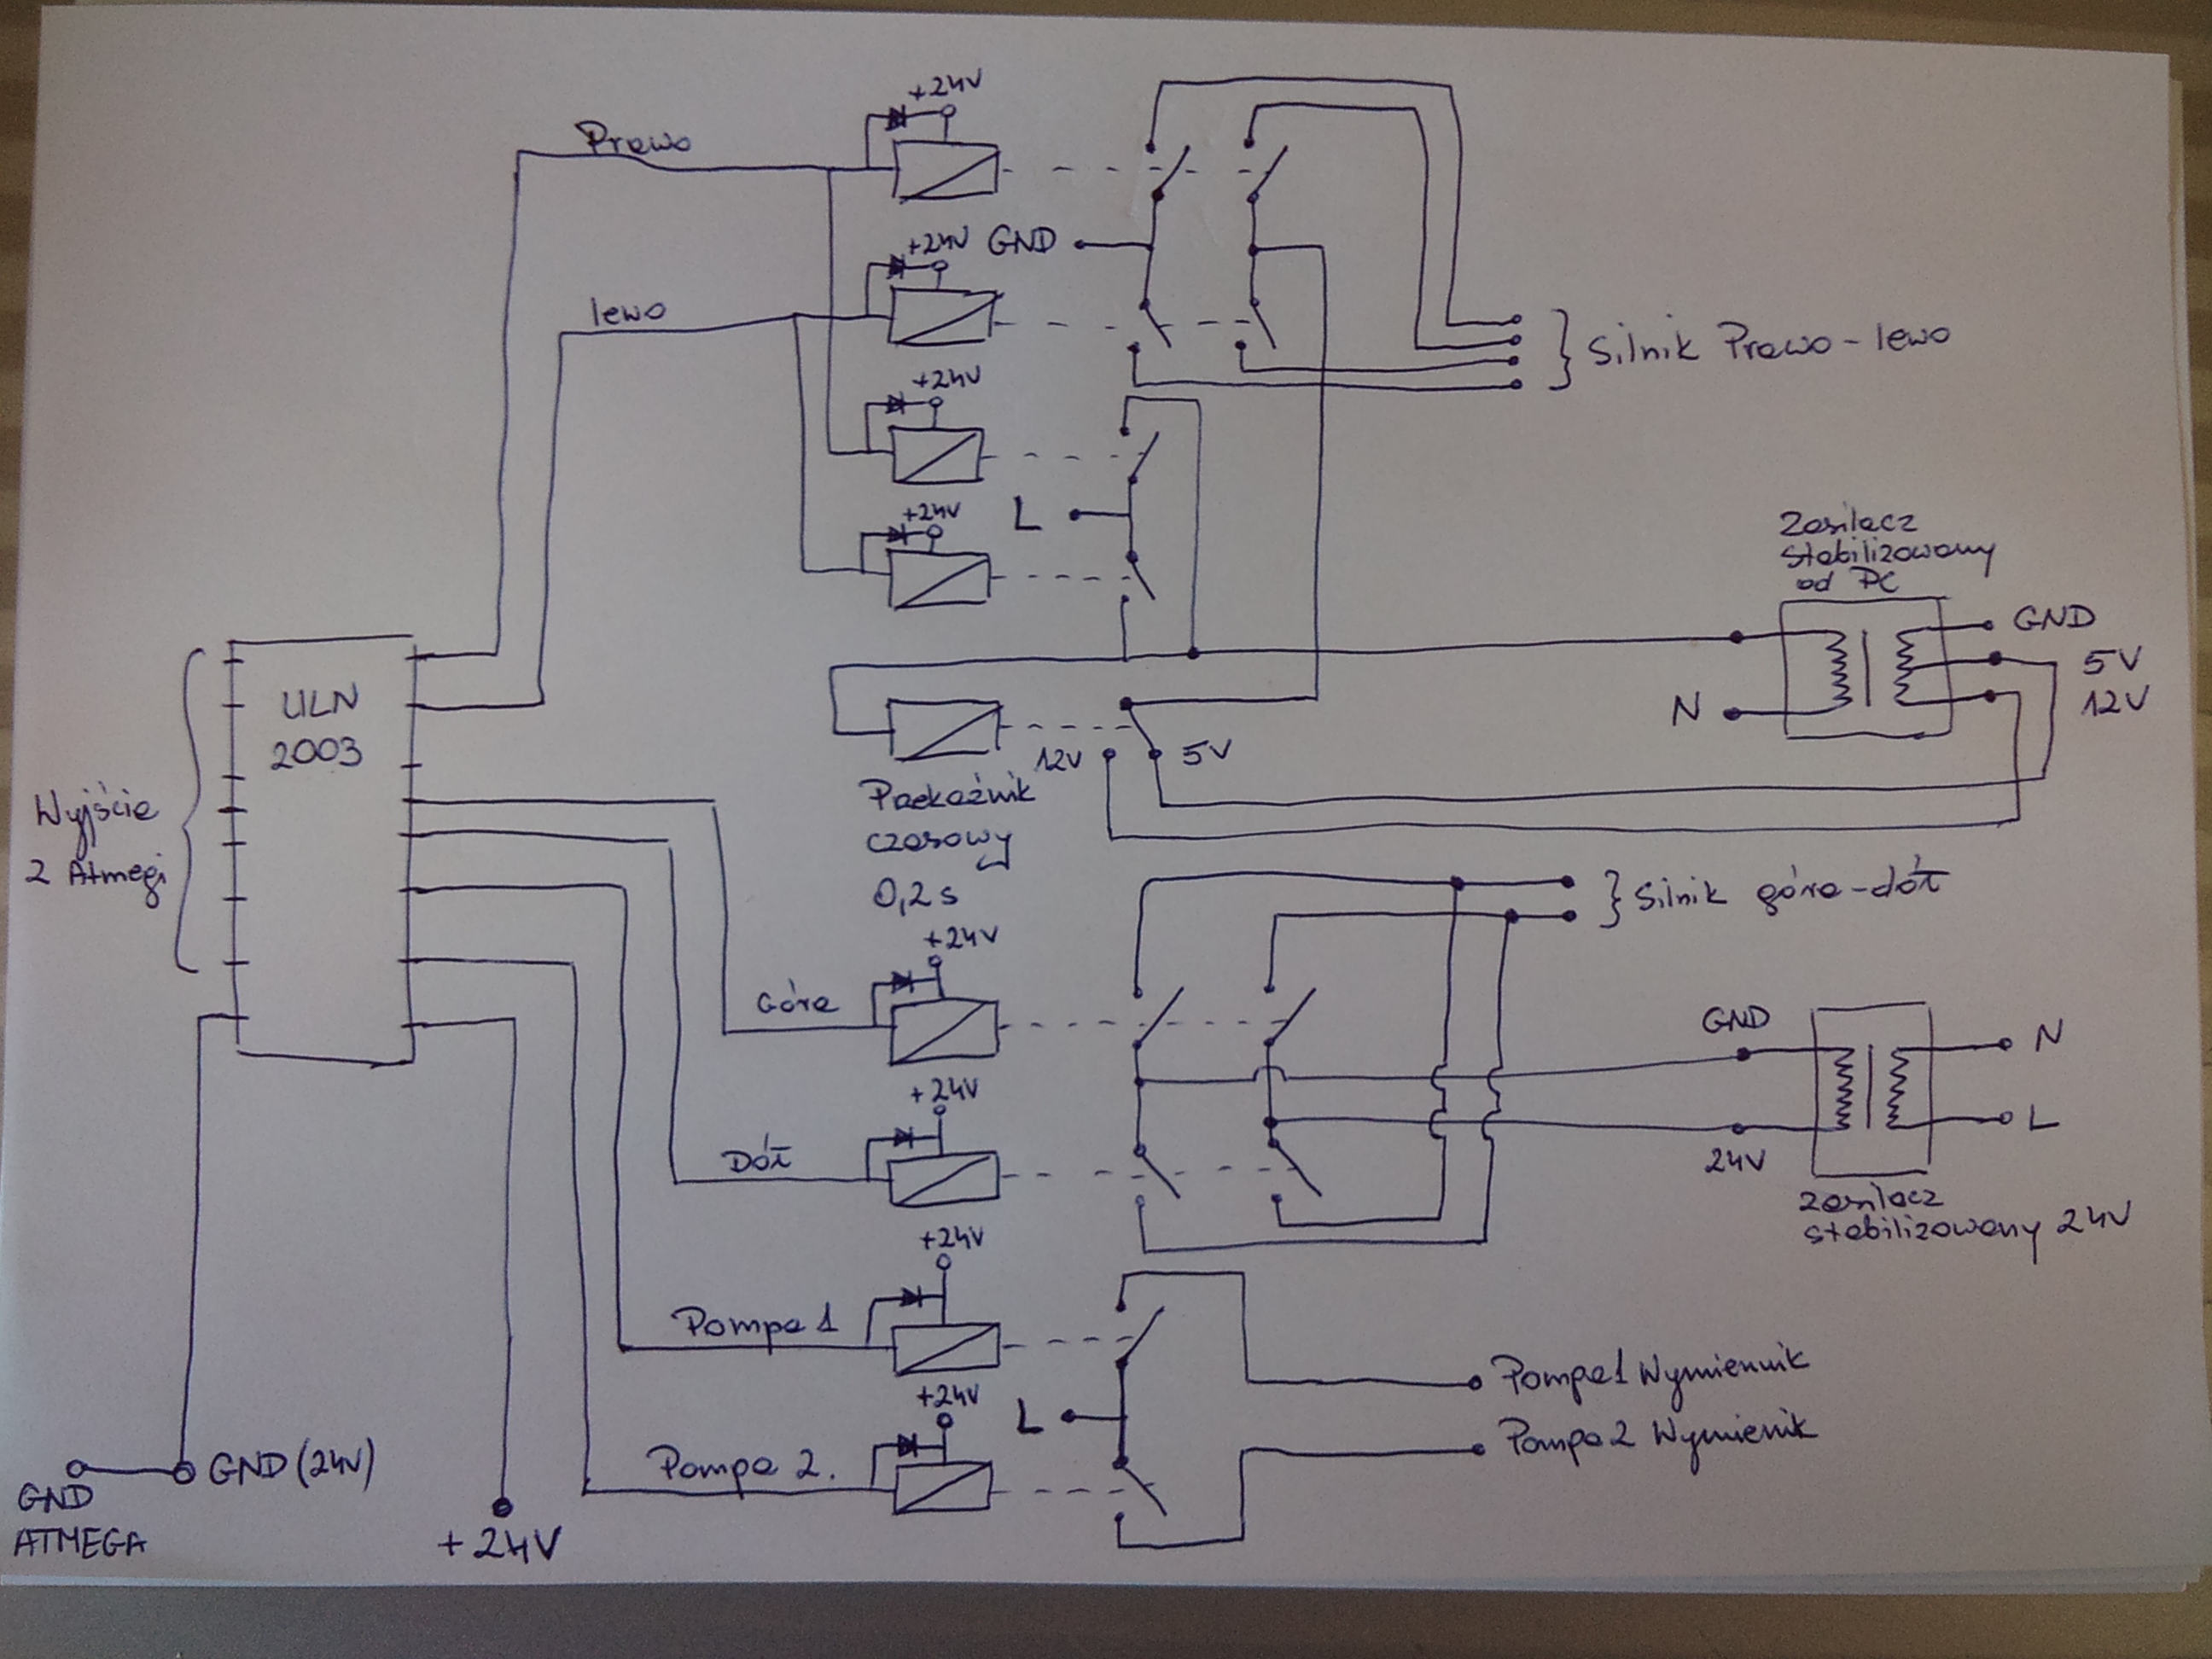 +24V
Prawo
+24V
GND
lewo
Silnik Prawo-lewo
+24V
+24V
L
Zasilacz
stabilizowany
od PC
GND
5V
12V
N
ULN
2003
12V
5V
Przekaźnik
czasowy
0,2s
Wyjście
z Atmegi
Silnik góra-dół
+24V
Góra
GND
N
+24V
Dół
24V
L
Zasilacz
stabilizowany 24V
+24V
Pompa 1
Pompa 1 Wymiennik
+24V
L
Pompa 2 Wymienik
Pompa 2.
GND (24V)
GND
ATMEGA
+24V